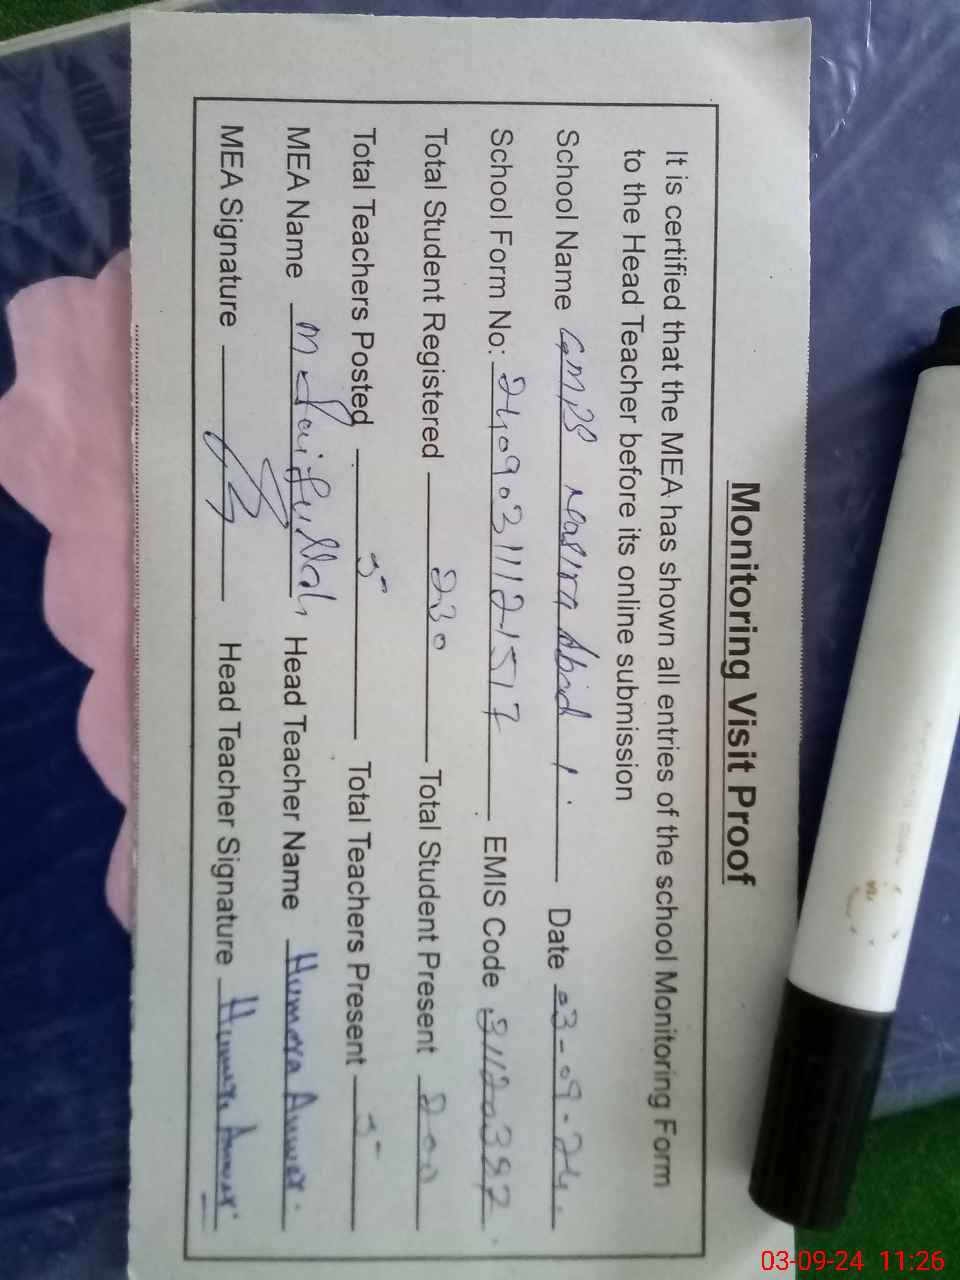 Monitoring Visit Proof
It is certified that the MEA has shown all entries of the school Monitoring Form
to the Head Teacher before its online submission
School Name GMPS Nasira Abad 1. Date 03-09-24.
School Form No: 24090311121517 EMIS Code
Total Student Registered 230 Total Student Present 200
Total Teachers Posted 5 Total Teachers Present 5
MEA Name M Saifullah Head Teacher Name Humera Anwer.
MEA Signature Head Teacher Signature Humera Anwer
03-09-24 11:26